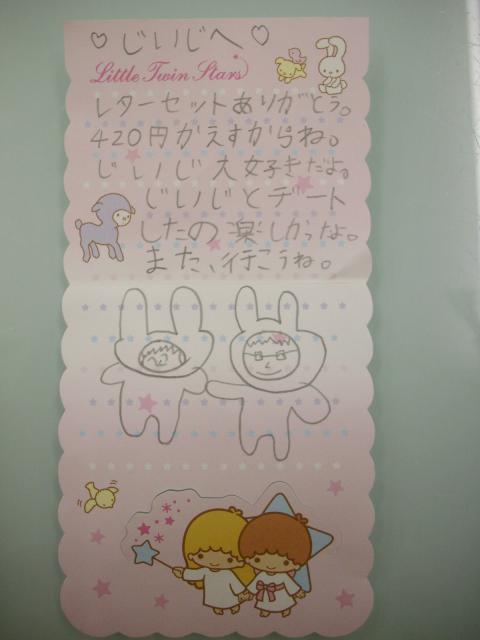 ♡じいじへ♡
Little Twin Stars
レターセットありがとう。
420円かえすからね。
じいじ大好きだよ。
じいじとデート
したの楽しかったよ。
また、行こうね。